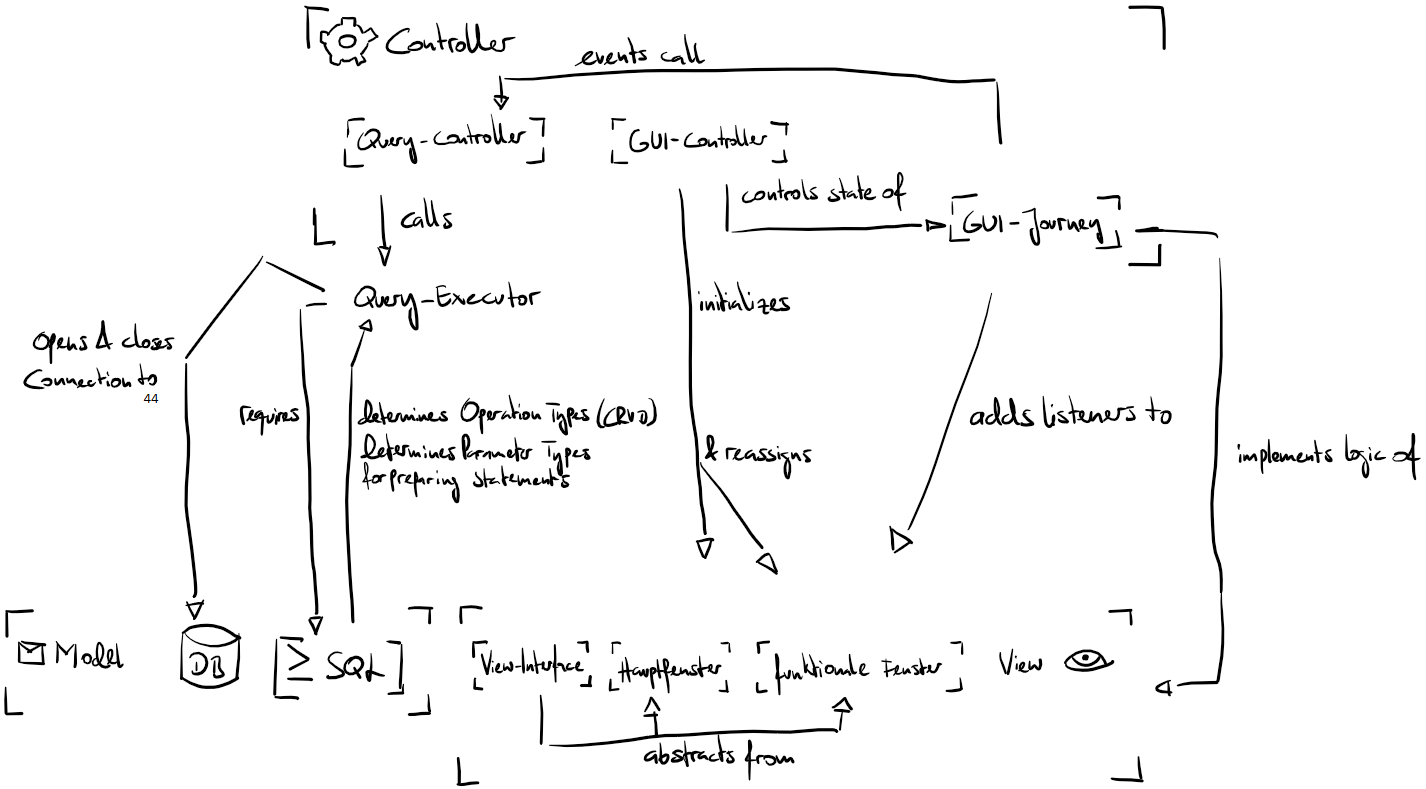 Controller
events call
Query-Controller
GUI-Controller
controls state of
GUI-Journey
calls
Query-Executor
initializes
Opens & closes
Connection to
44
requires
determines Operation Types (CRUD)
determines Parameter Types
for preparing Statements
& reassigns
adds listeners to
implements logic of
Model
DB
SQL
View-Interface
Hauptfenster
funktionale Fenster
View
abstracts from